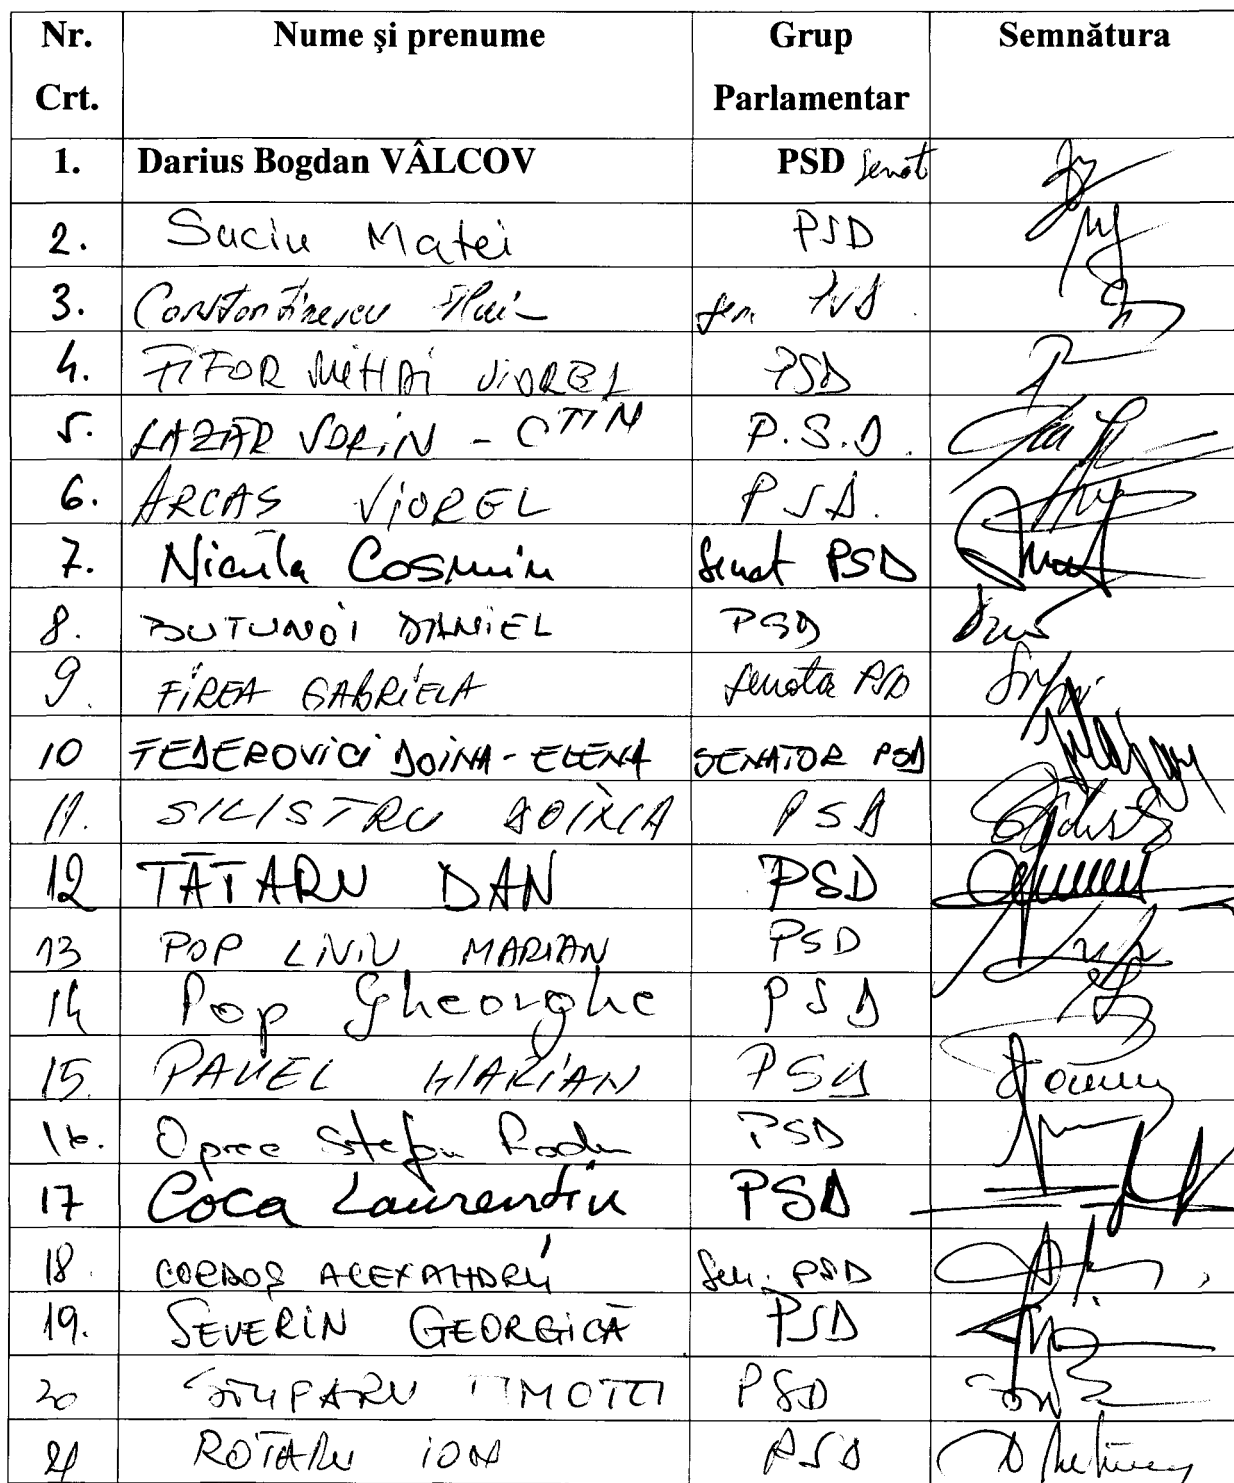 Nr. Crt. Nume şi prenume Grup Parlamentar Semnătura
1. Darius Bogdan VÂLCOV PSD Senat
2. Suciu Matei PSD
3. Constantinescu sen.
4. FIFOR MIHAI VIOREL PSD
5. LAZĂR SORIN - CTIN P.S.D.
6. ARCAS VIOREL PSD.
7. Nicula Cosmin Senat PSD
8. BUTUNOI DANIEL PSD
9. FIREA GABRIELA PSD
10 FEDEROVICI DOINA - ELENA SENATOR PSD
11. SILISTRU DOINA PSD
12 TĂTARU DAN PSD
13 POP LIVIU MARIAN PSD
14 Pop Gheorghe PSD
15. PAVEL MARIAN PSD
16. Oprea Stefan Radu PSD
17 Coca Laurentiu PSD
18. CORDOŞ ALEXANDRU Sen. PSD
19. SEVERIN GEORGICĂ PSD
20 PSD
21 ROTARU ION PSD